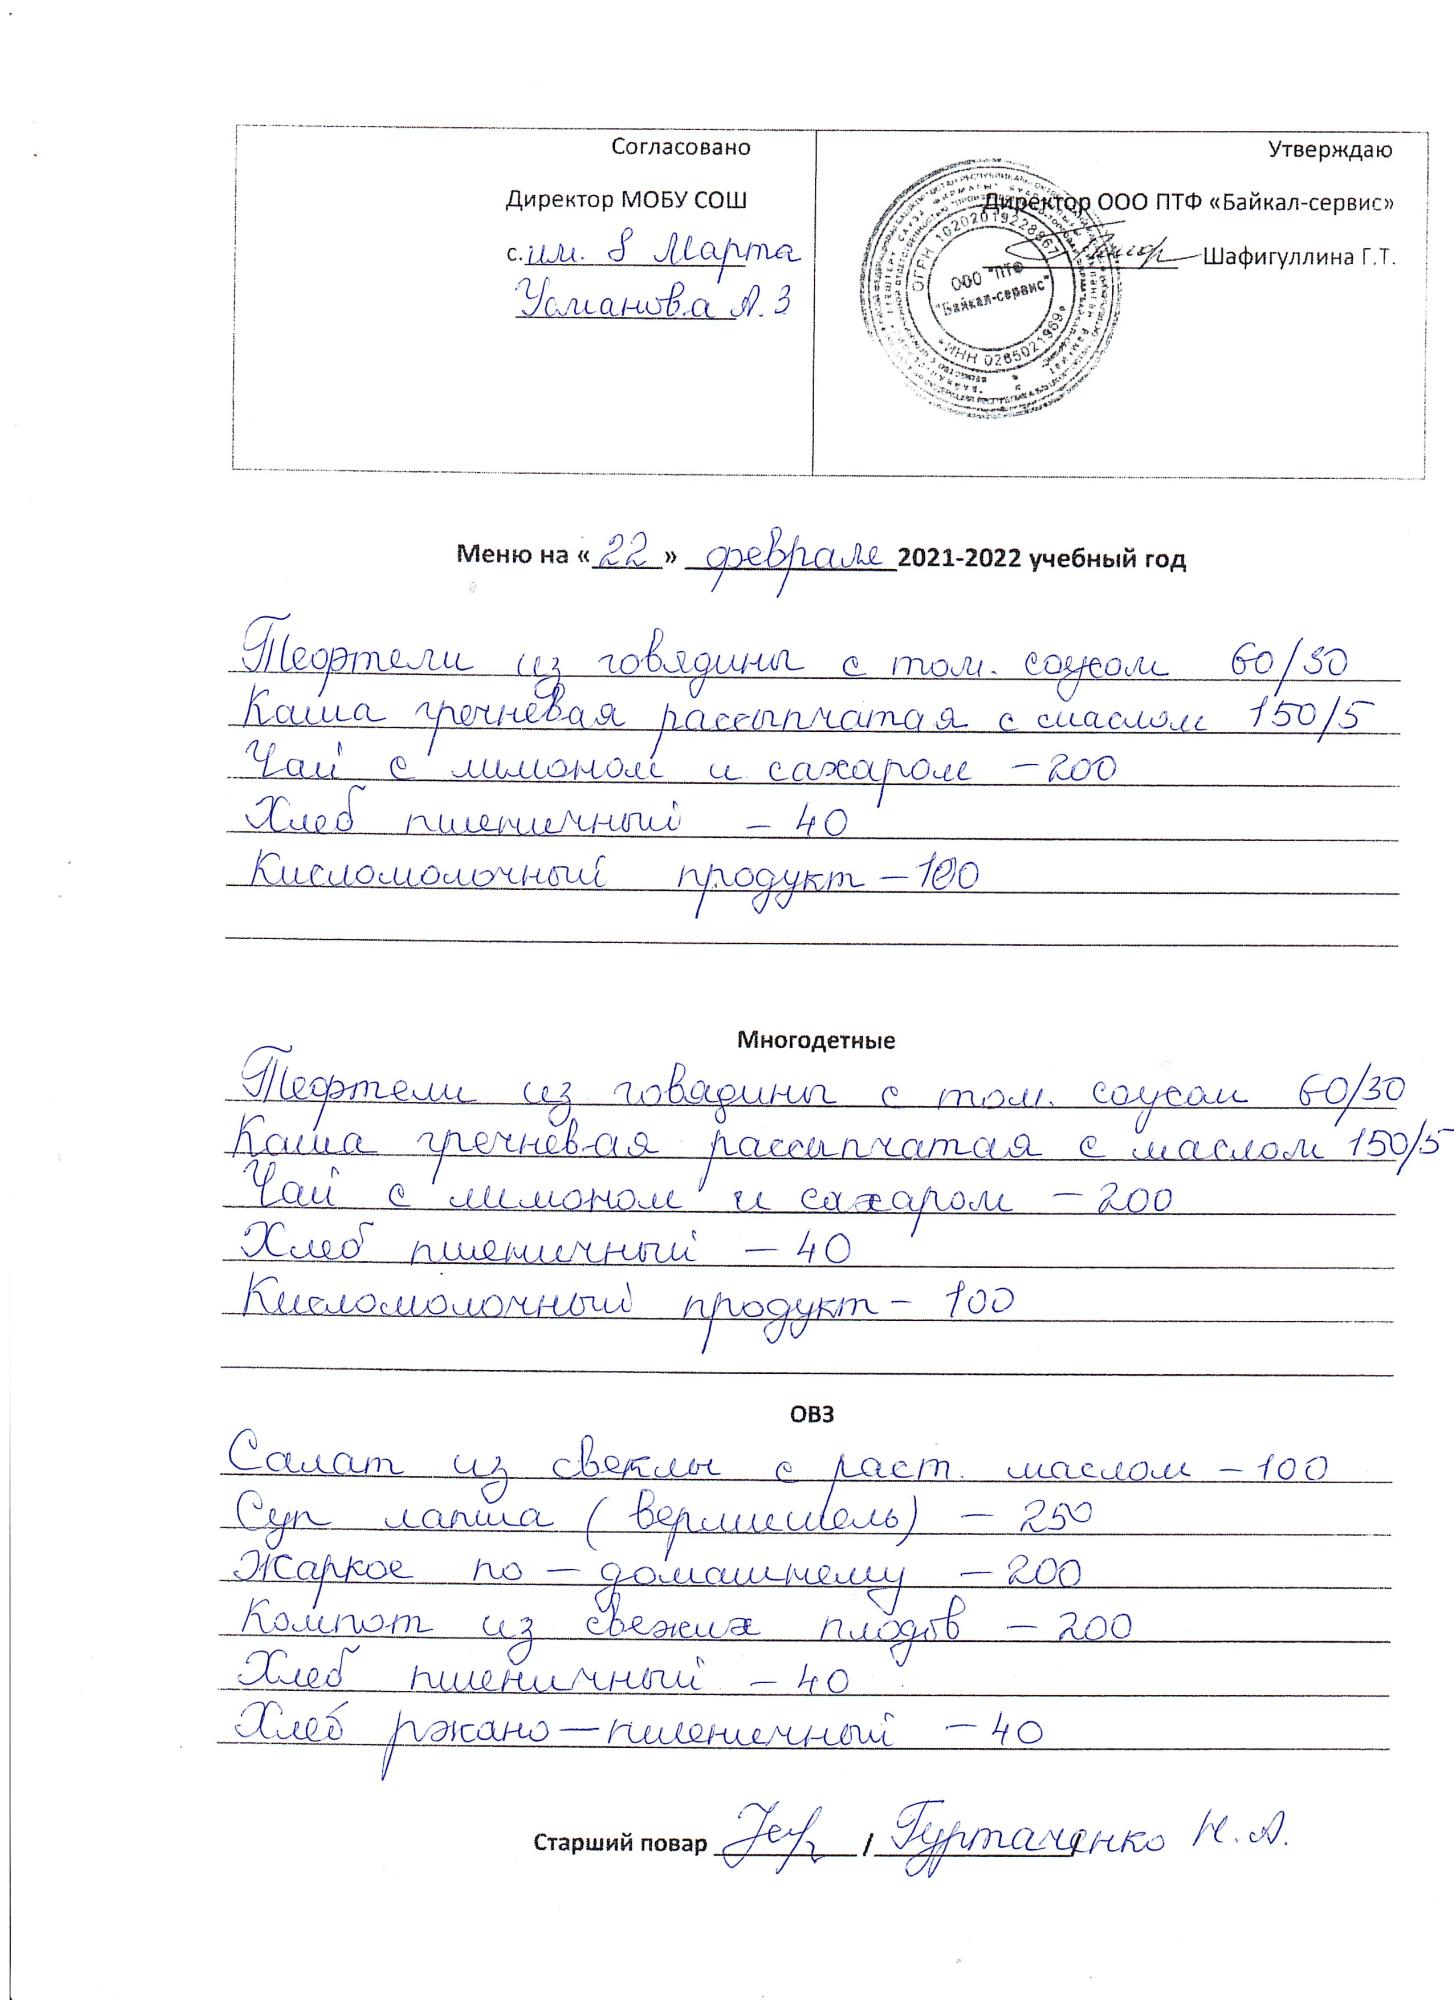 Согласовано
Директор МОБУ СОШ
с. им. 8 Марта
Усманова А.З
Утверждаю
Директор ООО ПТФ «Байкал-сервис»
Шафигуллина Г.Т.
ОГРН 1020201922896
ООО "ПТФ
"Байкал-сервис"
ИНН 0265021969
Меню на «22» феврале 2021-2022 учебный год
Тефтели из говядины с том. соусом 60/30
Каша гречневая рассыпчатая с маслом 150/5
Чай с лимоном и сахаром – 200
Хлеб пшеничный – 40
Кисломолочный продукт – 100
Многодетные
Тефтели из говядины с том. соусом 60/30
Каша гречневая рассыпчатая с маслом 150/5
Чай с лимоном и сахаром – 200
Хлеб пшеничный – 40
Кисломолочный продукт – 100
ОВЗ
Салат из свеклы с раст. маслом – 100
Суп лапша (вермишель) – 250
Жаркое по – домашнему – 200
Компот из свежих плодов – 200
Хлеб пшеничный – 40
Хлеб ржано – пшеничный – 40
Старший повар / Гуртаченко Н.А.